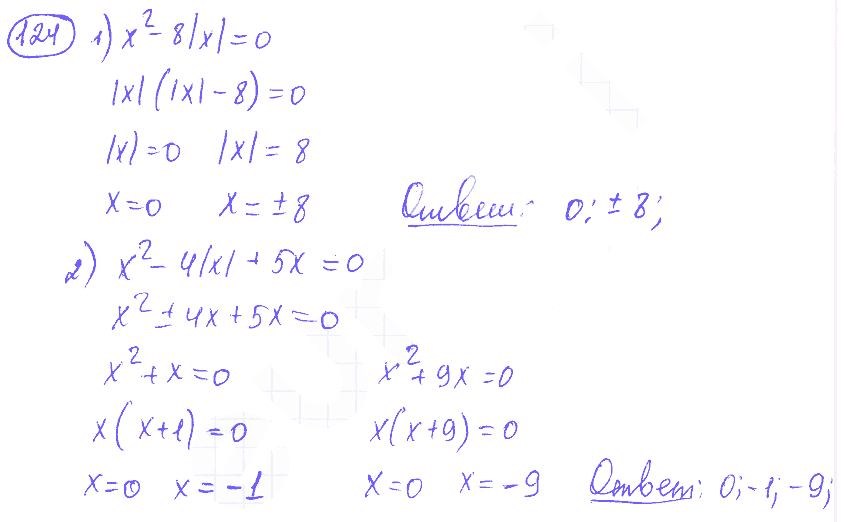 124 1) x² - 8|x| = 0
|x| (|x| - 8) = 0
|x| = 0 |x| = 8
x = 0 x = ± 8 Ответ: 0; ± 8;
2) x² - 4|x| + 5x = 0
x² ± 4x + 5x = 0
x² + x = 0 x² + 9x = 0
x(x+1) = 0 x(x+9) = 0
x = 0 x = -1 x = 0 x = -9 Ответ: 0; -1; -9;